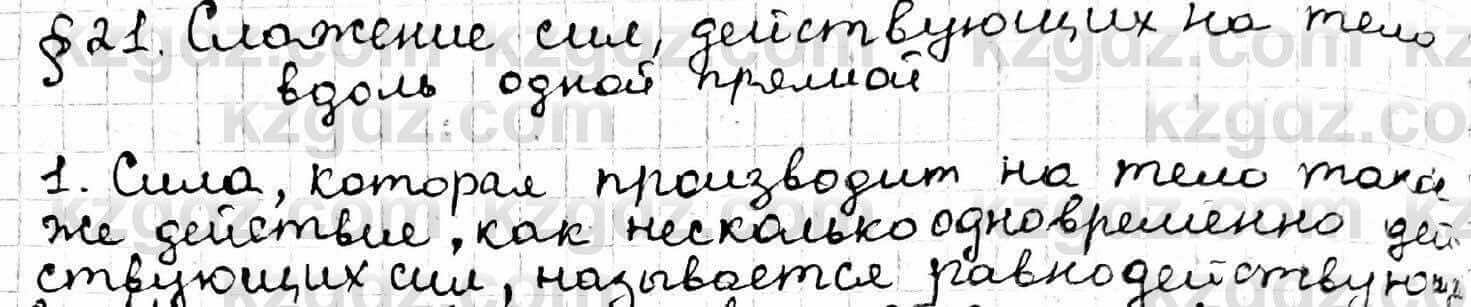 §21. Сложение сил, действующих на тело
вдоль одной прямой
1. Сила, которая производит на тело
же действие, как несколько одновременно дей
ствующих сил, называется равнодействующ